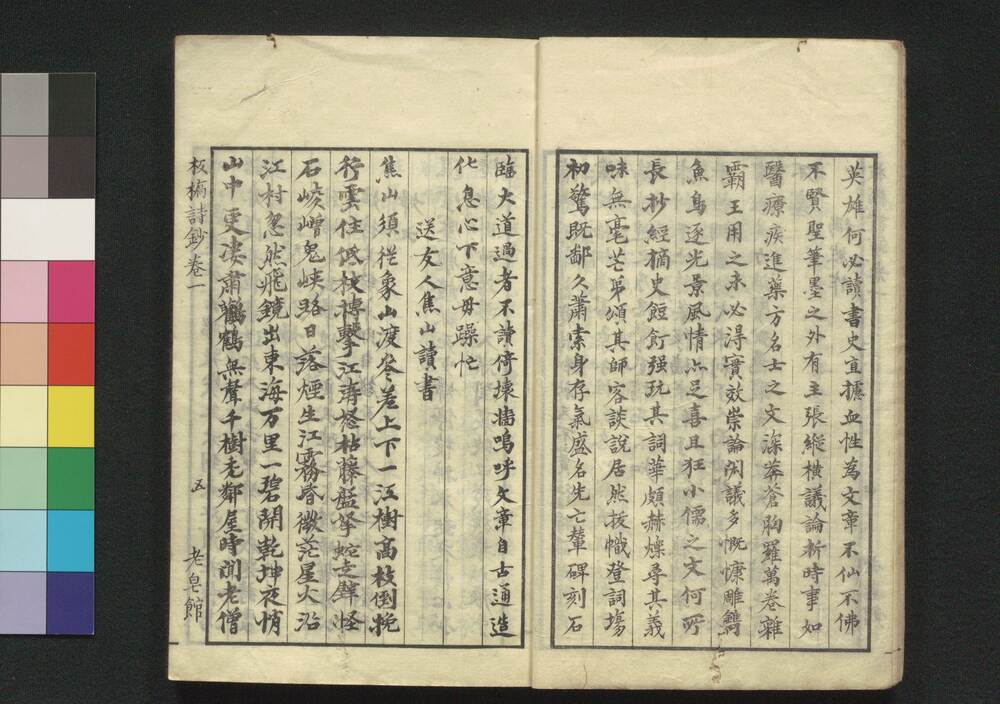 英雄何必讀書史直攄血性為文章不仙不佛
不賢聖筆墨之外有主張縱橫議論析時事如
醫療疾進藥方名士之文深莽蒼胸羅萬卷雜
霸王用之未必得實效崇論閎議多慨慷雕鐫
魚鳥逐光景風情亦足喜且狂小儒之文何所
長抄經摘史餖飣强玩其詞華頗赫爍尋其義
味無毫芒弟頌其師客談說居然拔幟登詞場
初驚既鄙久蕭索身存氣盛名先亡輦碑刻石
臨大道過者不讀倚壞墻嗚呼文章自古通造
化息心下意毋躁忙
送友人焦山讀書
焦山須從象山渡參差上下一江樹高枝倒挽
行雲住低枝搏擊江濤怒枯藤盤拏蛇走銲怪
石崚嶒鬼峽路日落煙生江霧昏微茫星火沿
江村忽然飛鏡出東海万里一碧開乾坤夜悄
山中更凄肅鸛鶴無聲千樹禿鄰屋時聞老僧
板橋詩鈔卷一
五
老皂館